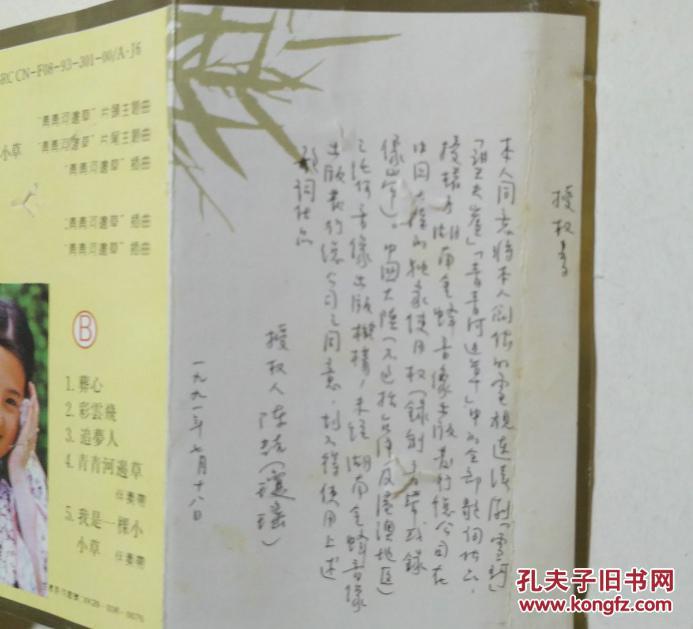 SRC CN-F08-93-301-00/A·J6
"青青河邊草"片頭主題曲
小草 "青青河邊草"片尾主題曲
"青青河邊草"插曲
"青青河邊草"插曲
"青青河邊草"插曲
B
1. 葬心
2. 彩雲飛
3. 追夢人
4. 青青河邊草
伴奏帶
5. 我是一棵小
小草 伴奏帶
授权书
本人同意将本人创作的电视连续剧「雪珂」
「望夫崖」「青青河边草」中的全部歌词作品,
授权予湖南金蜂音像出版发行总公司在
中国大陆的独家使用权(录制音带或录
像止等)。中国大陆(不包括台湾及港澳地区)
之任何音像出版机构,未经湖南金蜂音像
出版发行总公司之同意,都不得使用上述
歌词作品
授权人 陈喆(瓊瑤)
一九九一年七月十八日
孔夫子旧书网
www.kongfz.com